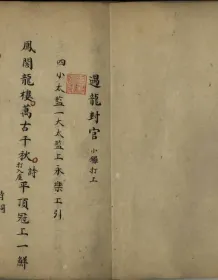 過龍封官 小鑼打上
四小太監一大太監上永樂上引
鳳閣龍樓萬古千秋 打入座 詩 平頂冠上一鮮